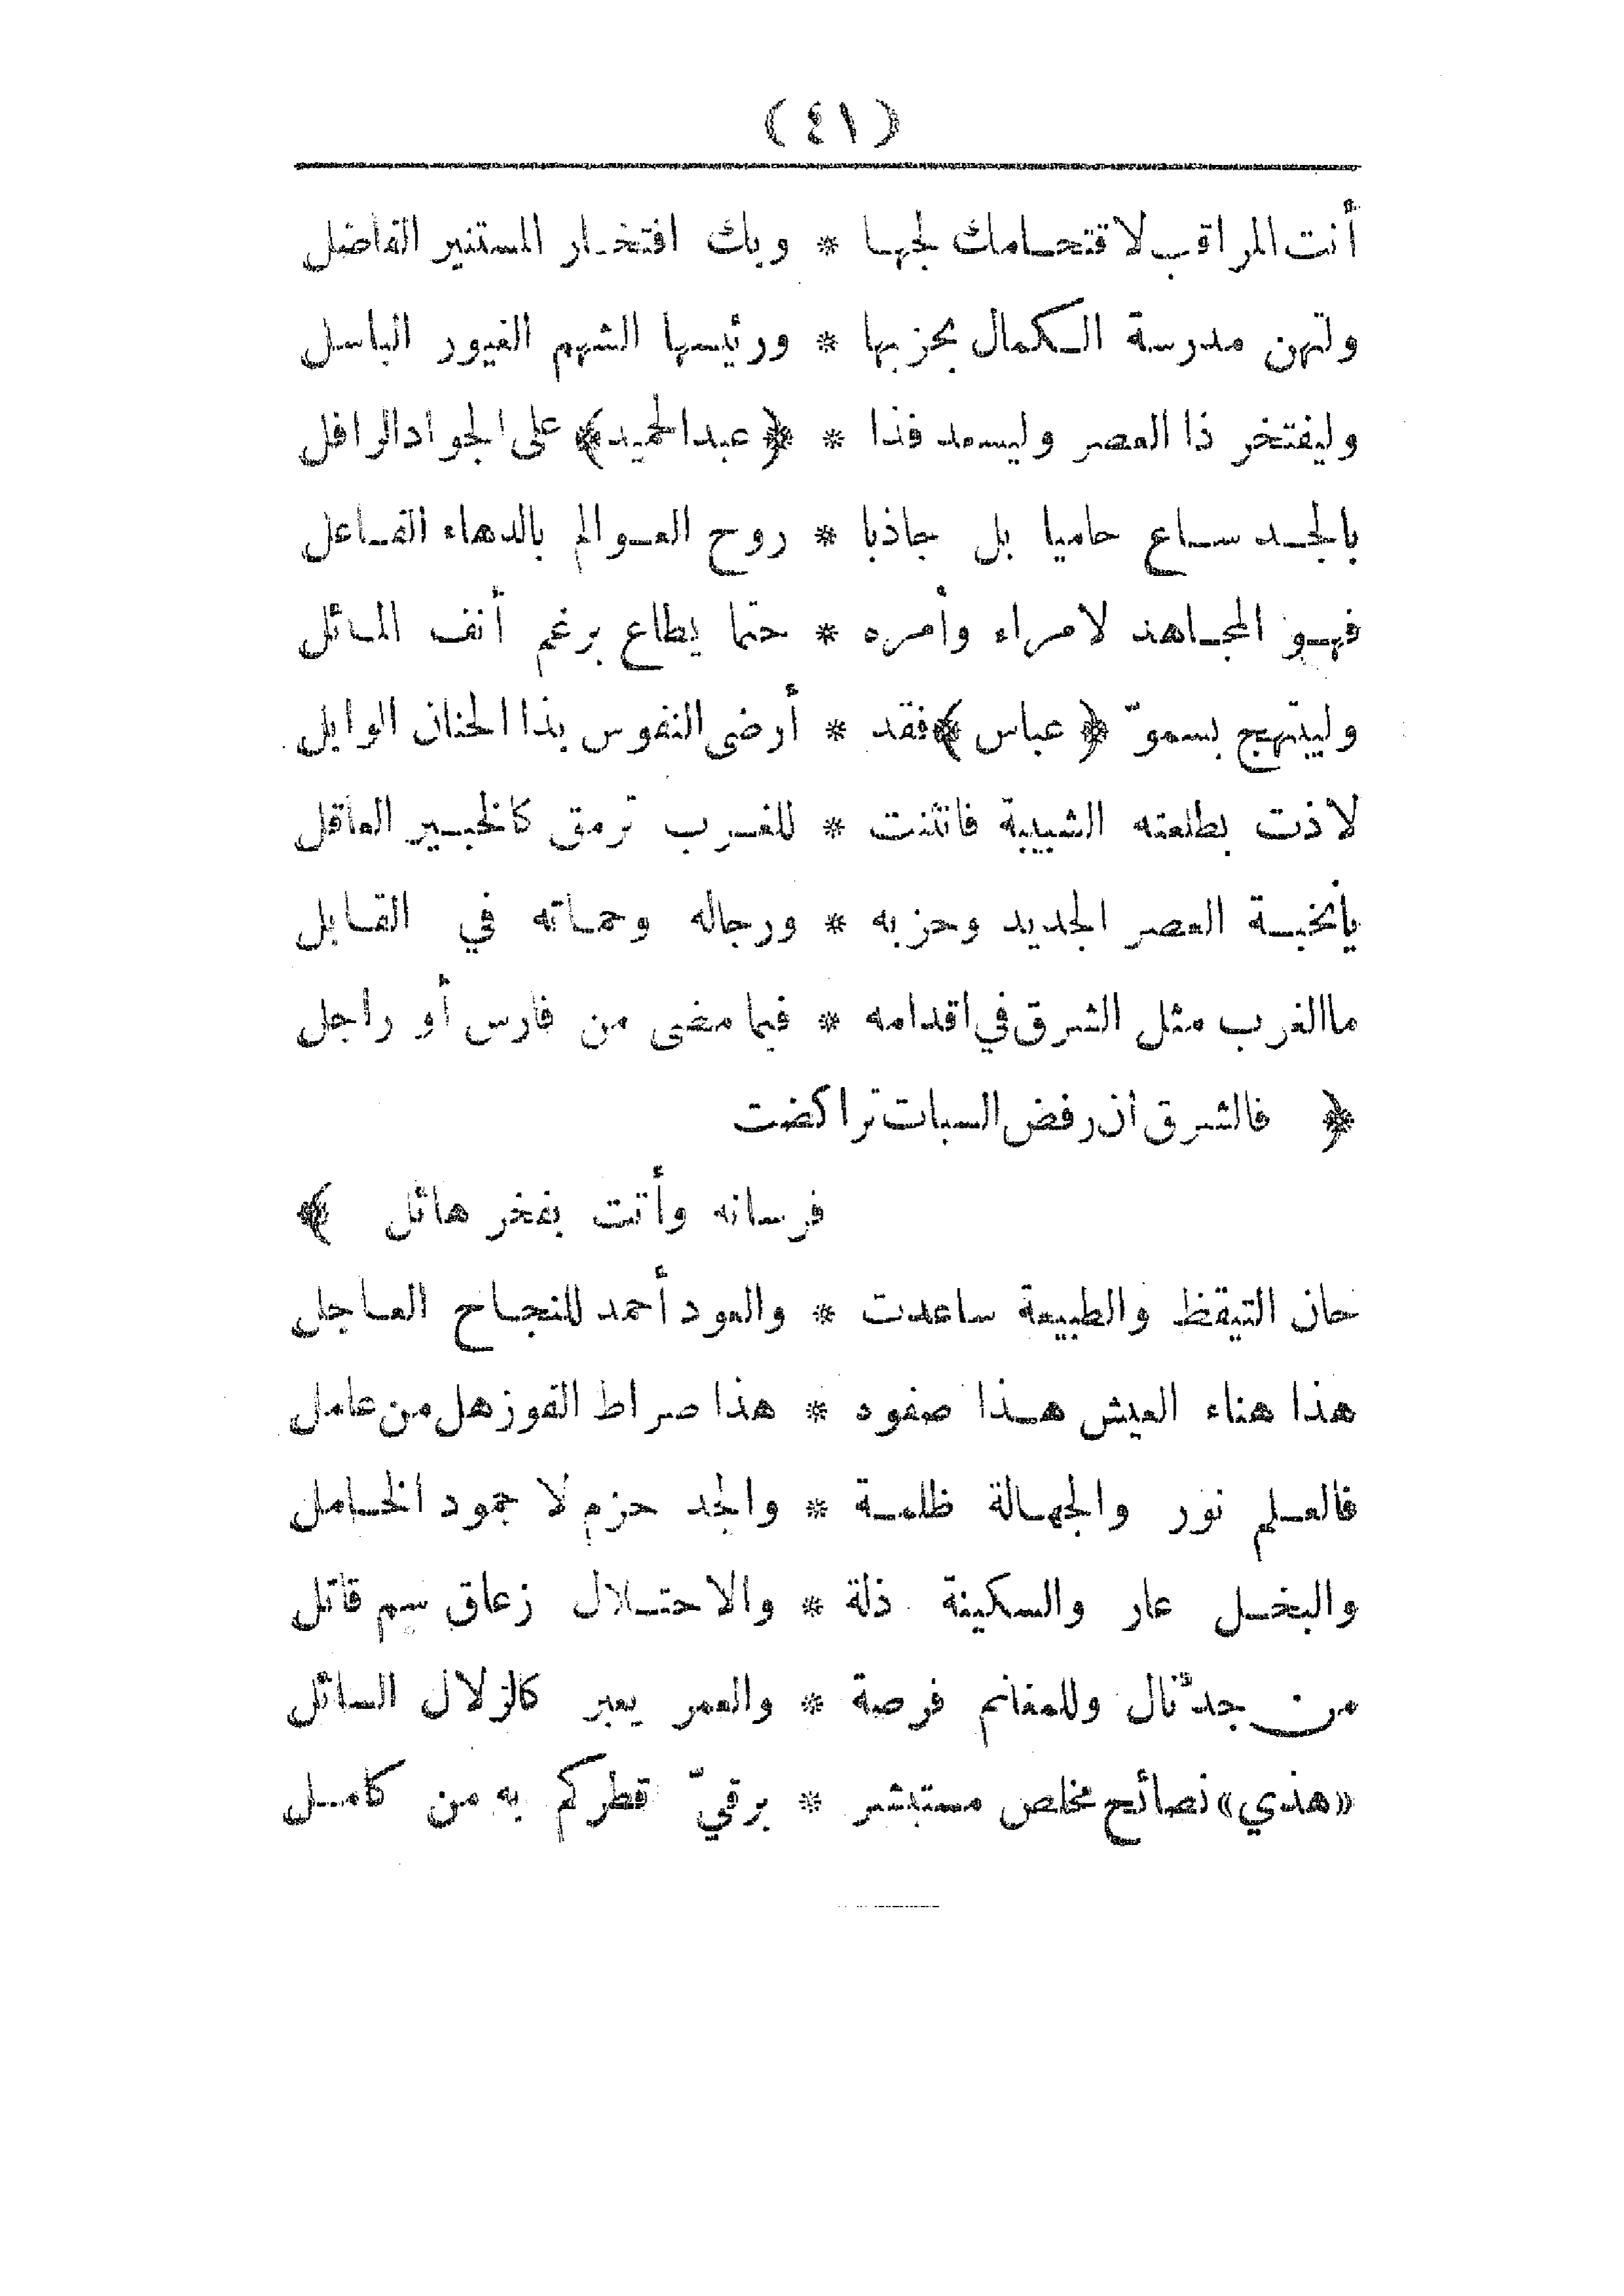 (٤١)
أنت المراقب لاقتحامك لجها * وبك افتخار المستنير الفاضل
ولتهن مدرسة الكمال بحزبها * ورئيسها الشهم الغيور الباسل
وليفتخر ذا العصر وليسعد فذا * ﴿عبدالحميد﴾ على الجواد الرافل
بالجد ساع حاميا بل جاذبا * روح العوالم بالدهاء الفاعل
فهو المجاهد لامراء وأمره * حتما يطاع برغم أنف المائل
وليبتهج بسموّ ﴿عباس﴾ فقد * أرضى النفوس بذا الحنان الوابل
لاذت بطلعته الشبيبة فانثنت * للغرب ترمق كالخبير العاقل
يانخبة العصر الجديد وحزبه * ورجاله وحماته في القابل
ما الغرب مثل الشرق في اقدامه * فيما مضى من فارس أو راجل
﴿ فالشرق ان رفض السبات تراكضت
فرسانه وأتت بفخر هائل ﴾
حان التيقظ والطبيعة ساعدت * والعود أحمد للنجاح العاجل
هذا هناء العيش هذا صفوه * هذا صراط الفوز هل من عامل
فالعلم نور والجهالة ظلمة * والجد حزم لا جمود الخامل
والبخل عار والسكينة ذلة * والاحتلال زعاق سم قاتل
من جدّ نال وللمغانم فرصة * والعمر يعبر كالزلال السائل
«هذي» نصائح مخلص مستبشر * برقيّ قطركم به من كامل